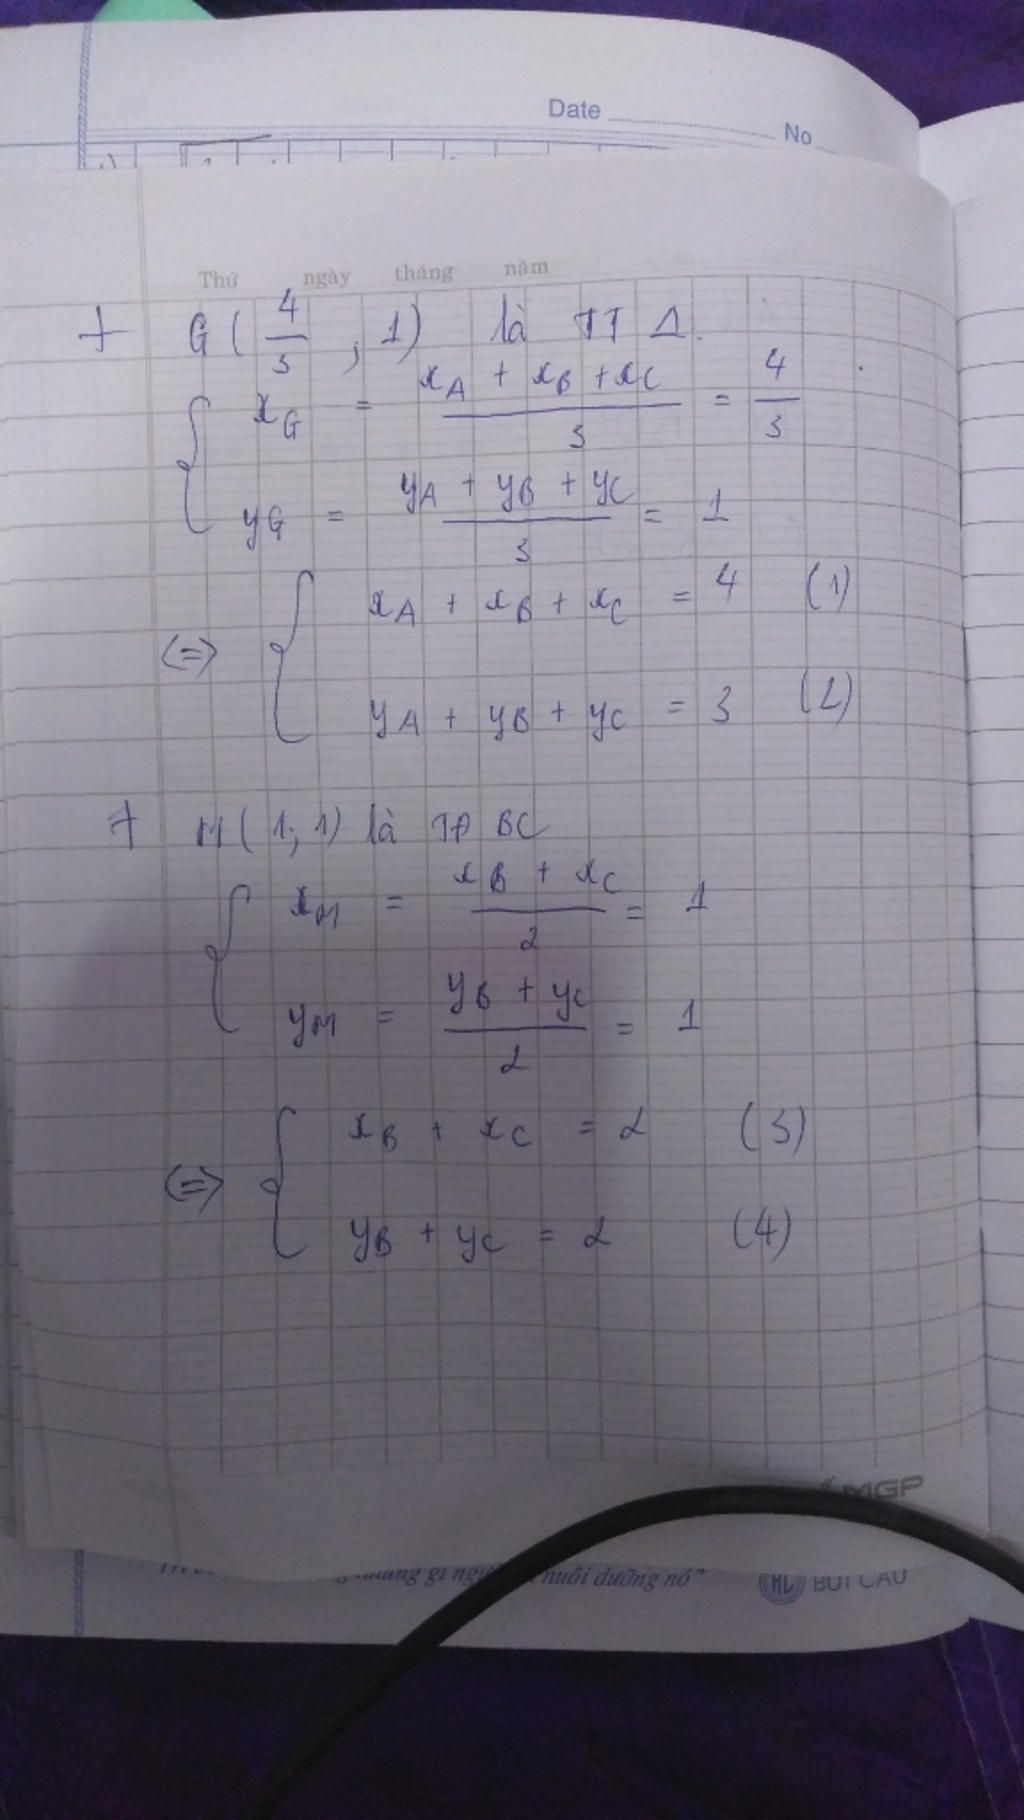 Date No
Thứ ngày tháng năm
+ G ( 4/3 , 1) là TT Δ.
{ xG = (xA + xB + xC)/3 = 4/3
yG = (yA + yB + yC)/3 = 1
<=> { xA + xB + xC = 4 (1)
yA + yB + yC = 3 (2)
+ M ( 1; 1) là TĐ BC
{ xM = (xB + xC)/2 = 1
yM = (yB + yC)/2 = 1
<=> { xB + xC = 2 (3)
yB + yC = 2 (4)
MGP
gì nuôi dưỡng nó"